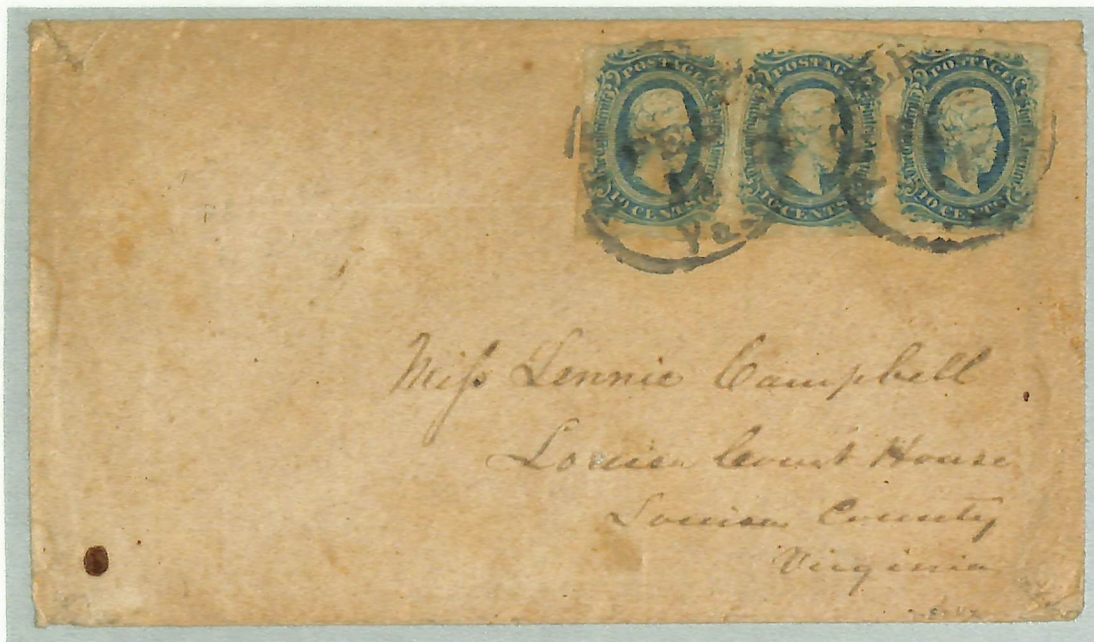 POSTAGE POSTAGE POSTAGE
10 CENTS 10 CENTS 10 CENTS
Va
Miſs Lennie Campbell
Louisa Court House
Louisa County
Virginia